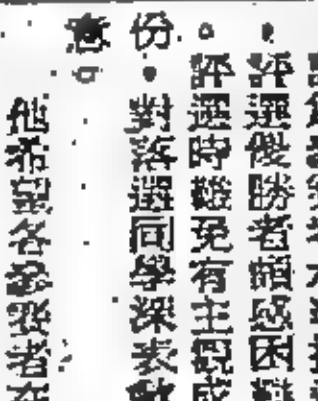 ，評選優勝者頗感困難
。評選時難免有主觀成
份，對落選同學深表歉
意。
他希望各參賽者在